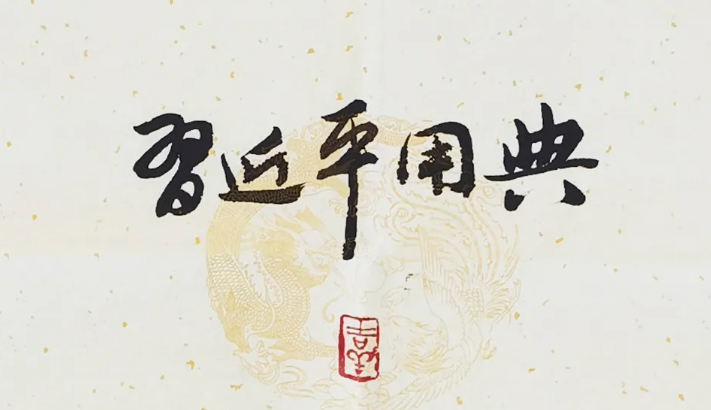 習近平用典